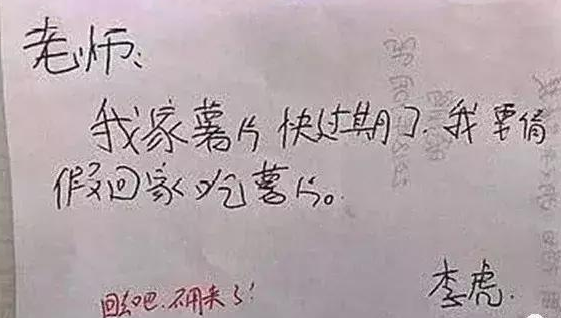 老师：
我家薯片快过期了.我要请
假回家吃薯片。
李虎.
回去吧.不用来了!